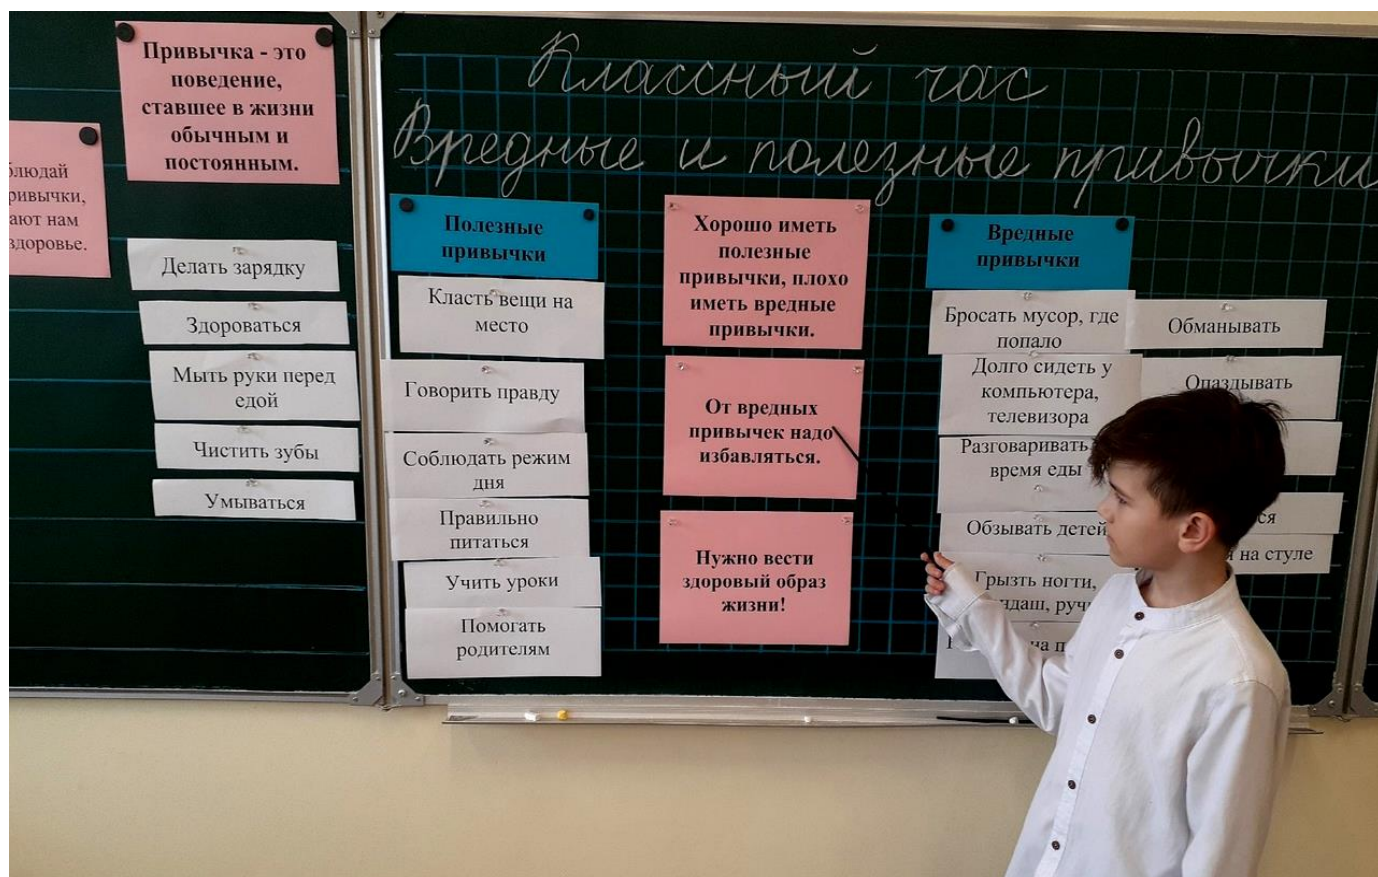 Классный час
Вредные и полезные привычки
Привычка - это
поведение,
ставшее в жизни
обычным и
постоянным.
привычки,
нам
здоровье.
Делать зарядку
Здороваться
Мыть руки перед
едой
Чистить зубы
Умываться
Полезные
привычки
Класть вещи на
место
Говорить правду
Соблюдать режим
дня
Правильно
питаться
Учить уроки
Помогать
родителям
Хорошо иметь
полезные
привычки, плохо
иметь вредные
привычки.
От вредных
привычек надо
избавляться.
Нужно вести
здоровый образ
жизни!
Вредные
привычки
Бросать мусор, где
попало
Долго сидеть у
компьютера,
телевизора
Разговаривать
время еды
Обзывать детей
Грызть ногти,
на
Обманывать
Опаздывать
на стуле